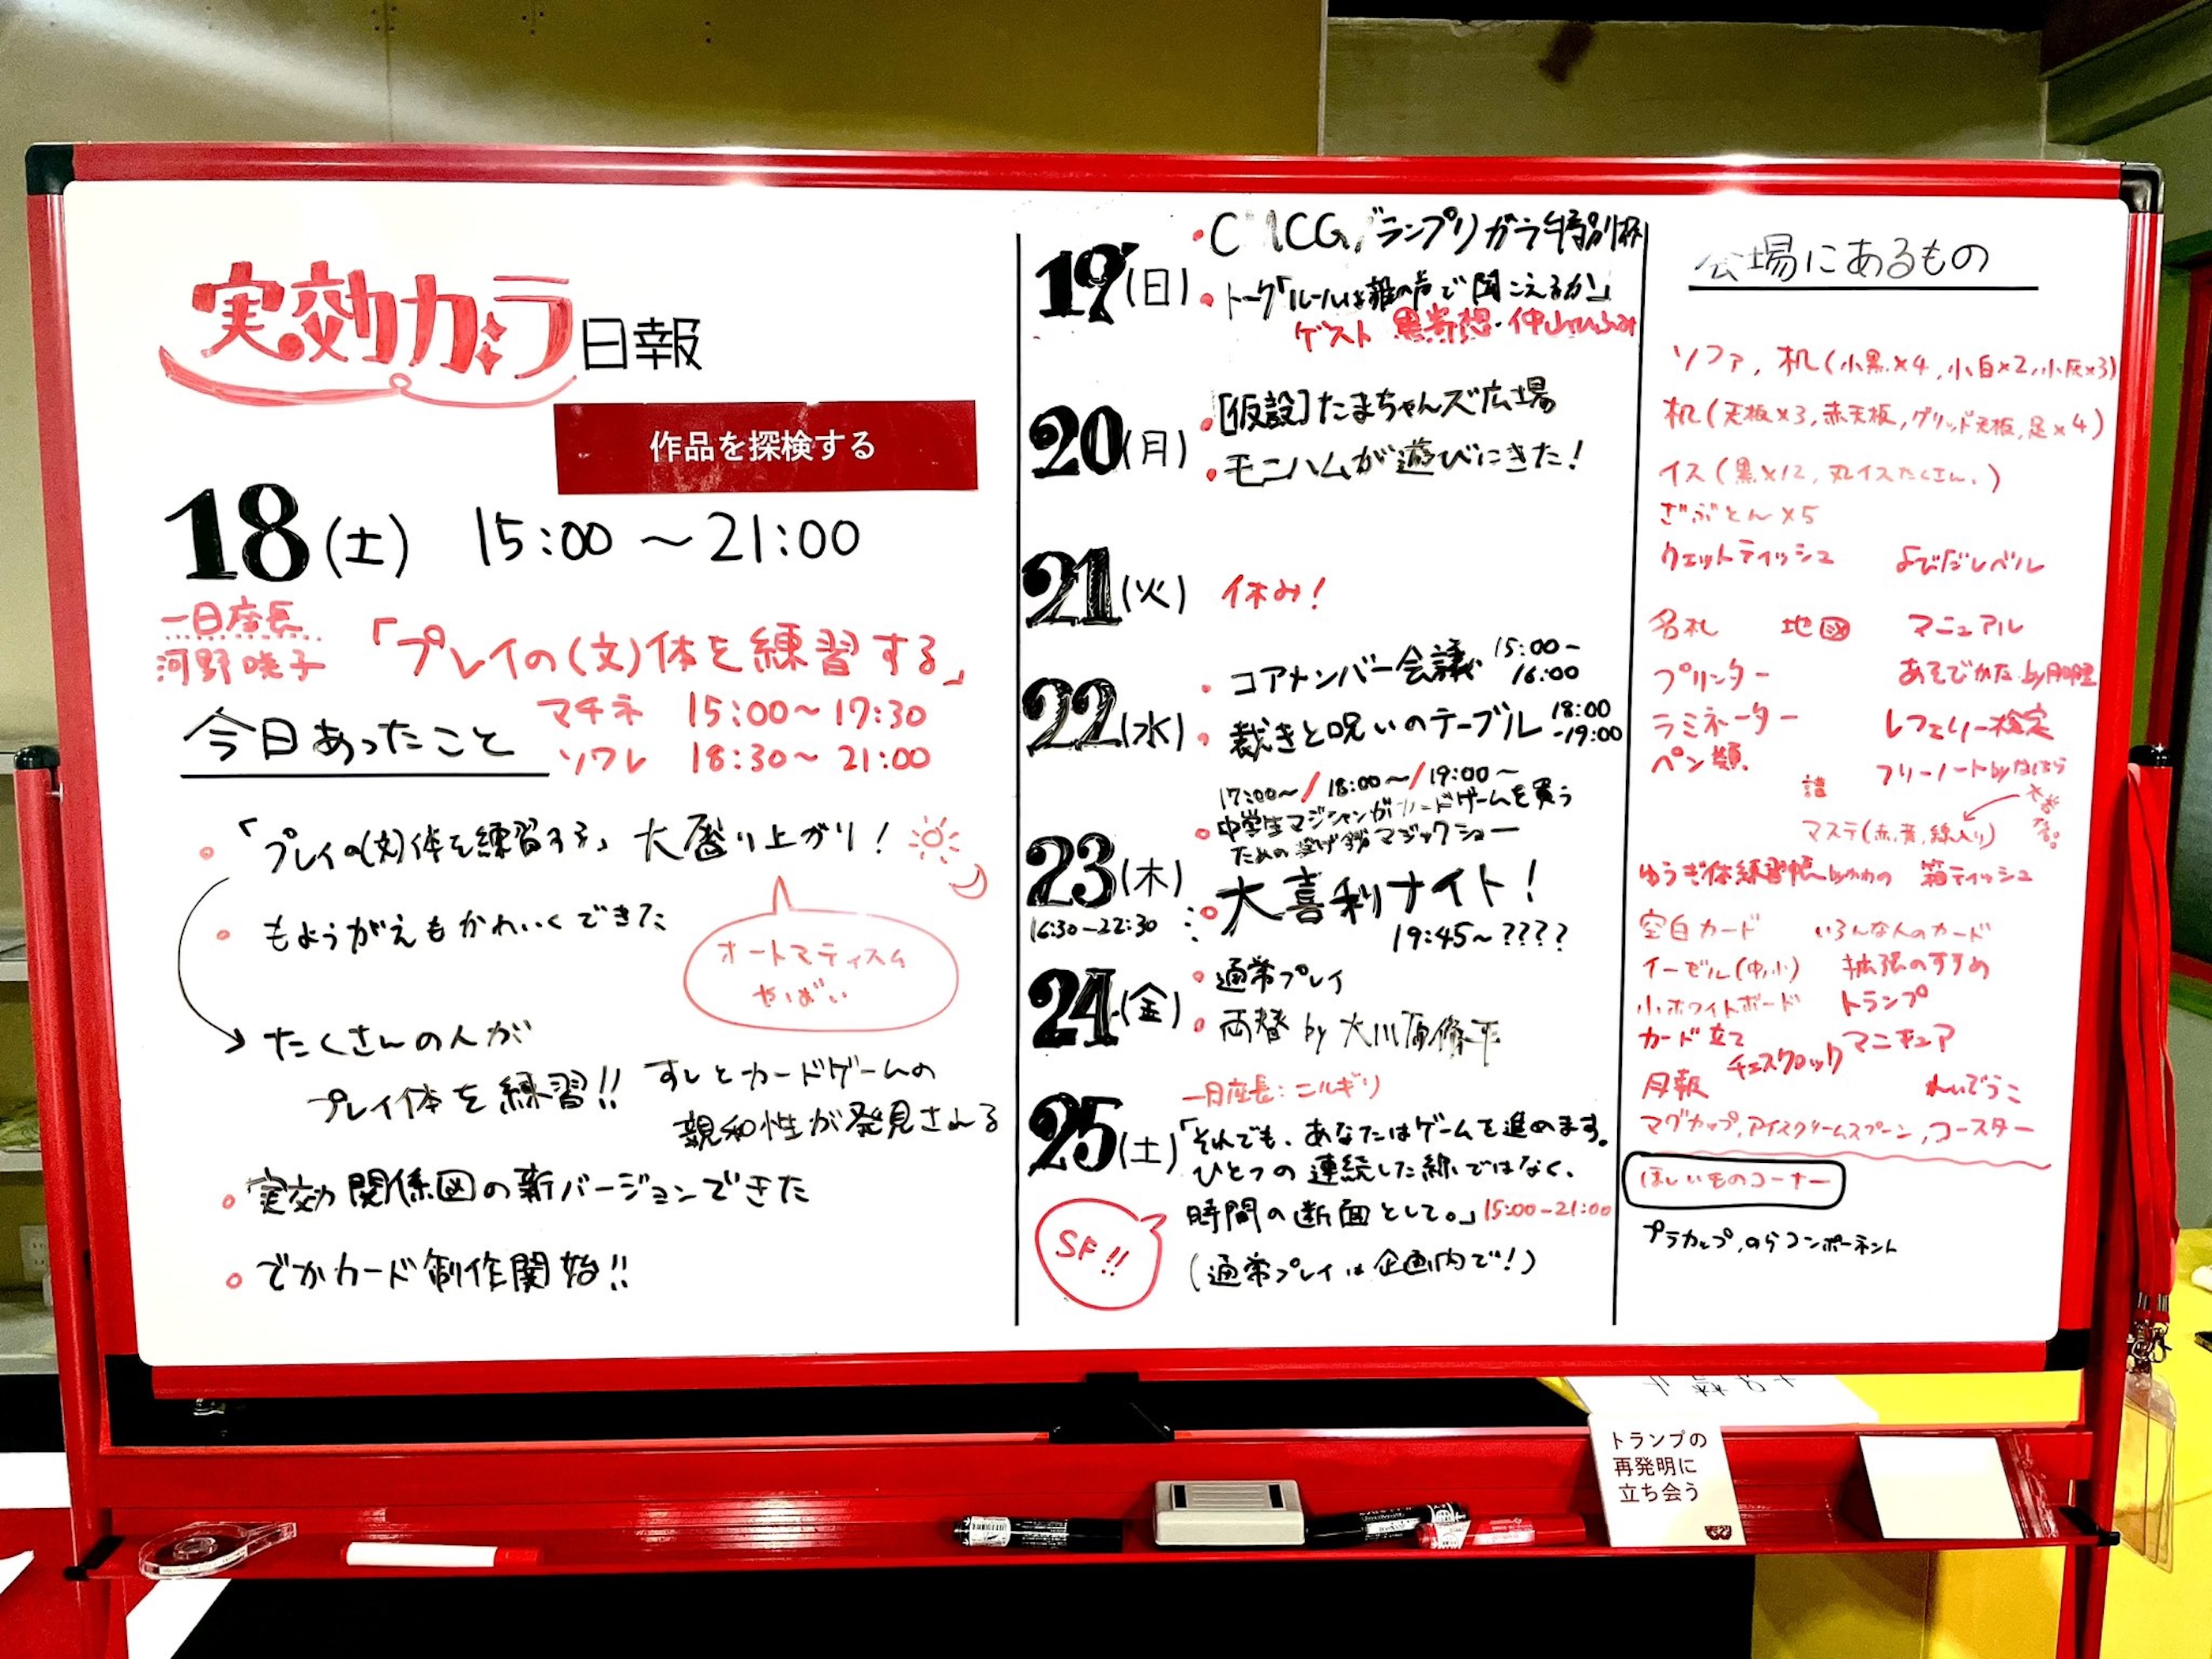 実効カメラ日報
作品を探検する
18(土) 15:00〜21:00
一日座長
「プレイの(文)体を練習する」
マチネ 15:00〜17:30
ソワレ 18:30〜21:00
今日あったこと
「プレイの(文)体を練習する」大盛り上がり!
もようがえもかわいくできた
オートマティスム
やばい
たくさんの人が
プレイ体を練習!!
すしとカードゲームの
親和性が発見される
実効関係図の新バージョンできた
でかカード制作開始!!
19(日)
グランプリガラ特別杯
トーク「ルールは誰の声で聞こえるか」
ゲスト
20(月)
[仮設]たまちゃんズ広場
モニハムが遊びにきた!
21(火) 休み!
22(水)
コアメンバー会議 15:00-16:00
裁きと呪いのテーブル 18:00-19:00
17:00〜/18:00〜/19:00〜
23(木)
16:30-22:30
中学生マジシャンがカードゲームを買う
ための投げ銭マジックショー
大喜利ナイト!
19:45〜????
24(金)
通常プレイ
両替 by
25(土)
一日座長:ニルギリ
「それでも、あなたはゲームを進めます。
ひとつの連続した線ではなく、
時間の断面として。」15:00-21:00
(通常プレイは企画内で!)
SF!!
会場にあるもの
ソファ, 机(小黒×4, 小白×2, 小灰×3)
机(天板×3, 赤天板, グリッド天板, 足×4)
イス(黒×12, 丸イスたくさん、)
ざぶとん×5
ウェットティッシュ よびだしベル
名札 地図 マニュアル
プリンター あそびかた by
ラミネーター レフェリー検定
ペン類 フリーノート by
マステ(赤,青,線入り)
ゆうぎ体練習帳 byかわの 箱ティッシュ
空白カード いろんな人のカード
イーゼル(中,小) 拡張のすすめ
小ホワイトボード トランプ
カード立て チェスクロック マニキュア
月報 れいぞうこ
マグカップ,アイスクリームスプーン,コースター
ほしいものコーナー
プラカップ,のらコンポーネント
トランプの
再発明に
立ち会う